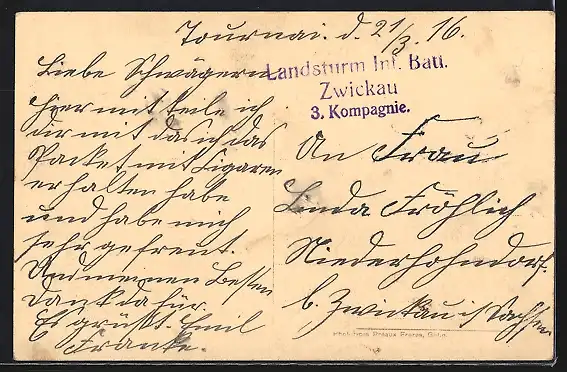 Tournai. d. 21/3. 16.
Liebe Schwägern
Hier mit teile ich
dir mit das ich das
Packet mit Zigaren
erhalten habe
und habe mich
sehr gefreut.
Und meinen Besten
Dank dafür.
Es grüßt. Emil
Franke.
Landsturm Inf. Batl.
Zwickau
3. Kompagnie.
An Frau
Linda Fröhlich
Niederhohndorf.
b. Zwickau i Sachsen